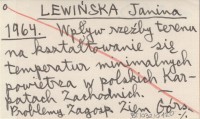 LEWIŃSKA Janina
1964. Wpływ rzeźby terenu
na kształtowanie się
temperatur minimalnych
powietrza w polskich Kar-
patach Zachodnich.
Problemy Zagosp. Ziem Górs.